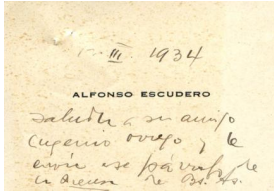 III. 1934
ALFONSO ESCUDERO
saluda a su amigo
Eugenio Orrego y le
envía ese párrafo de
la prensa de Bs. As.